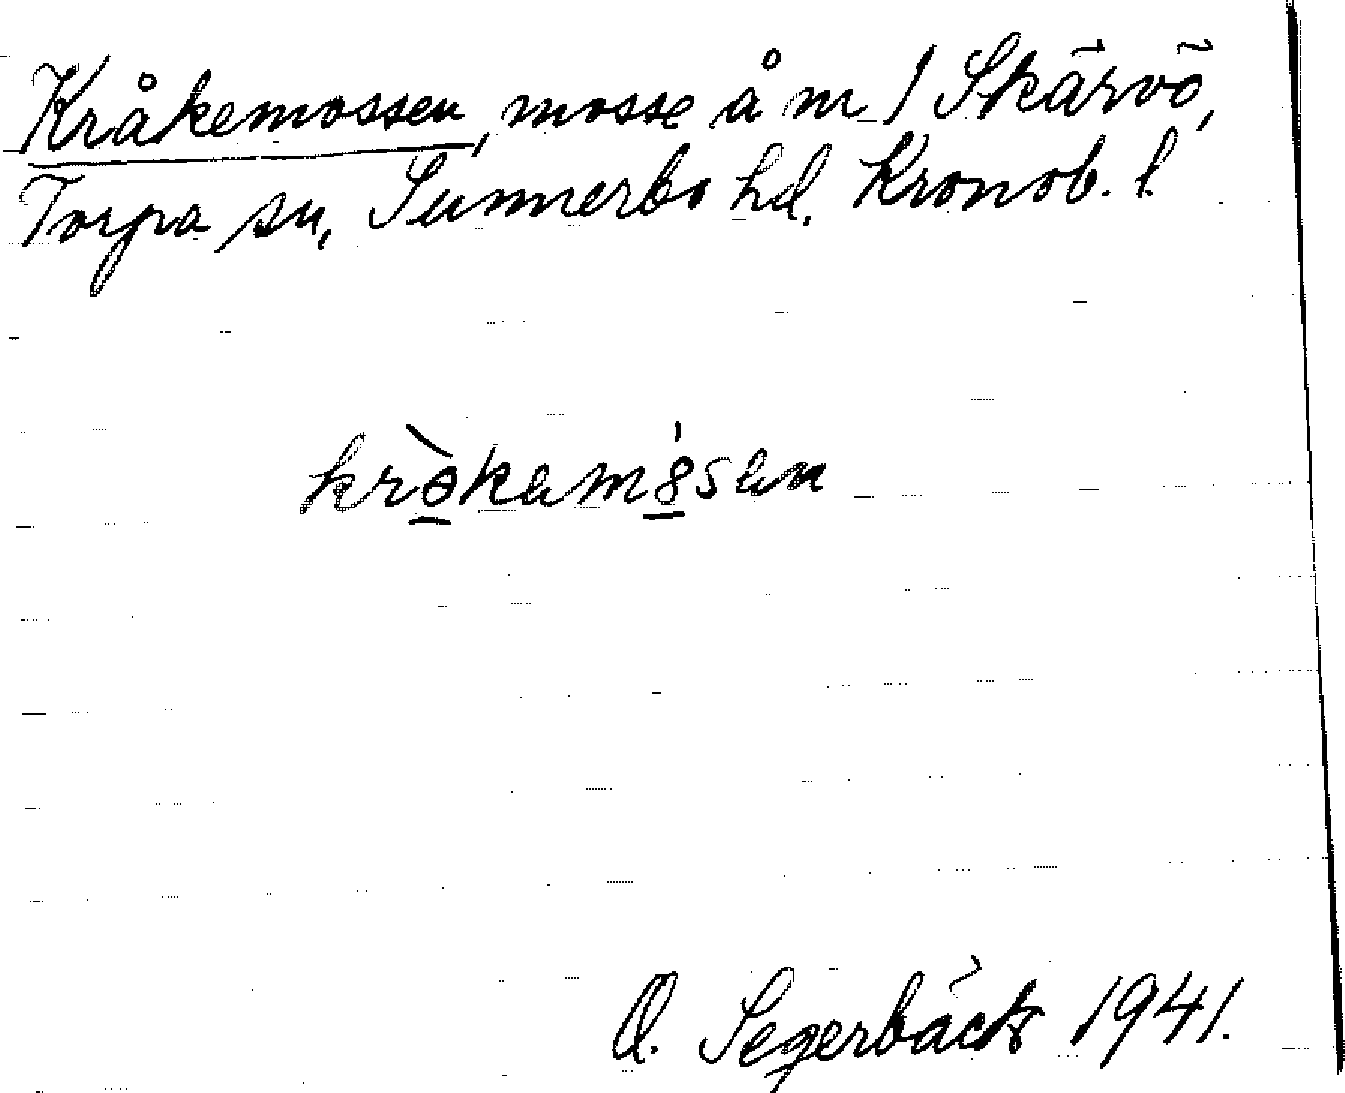 Kråkemossen, mosse å m 1 Skärvö,
Torpa sn, Sunnerbo hd. Kronob. l.
O. Segerbäck 1941.